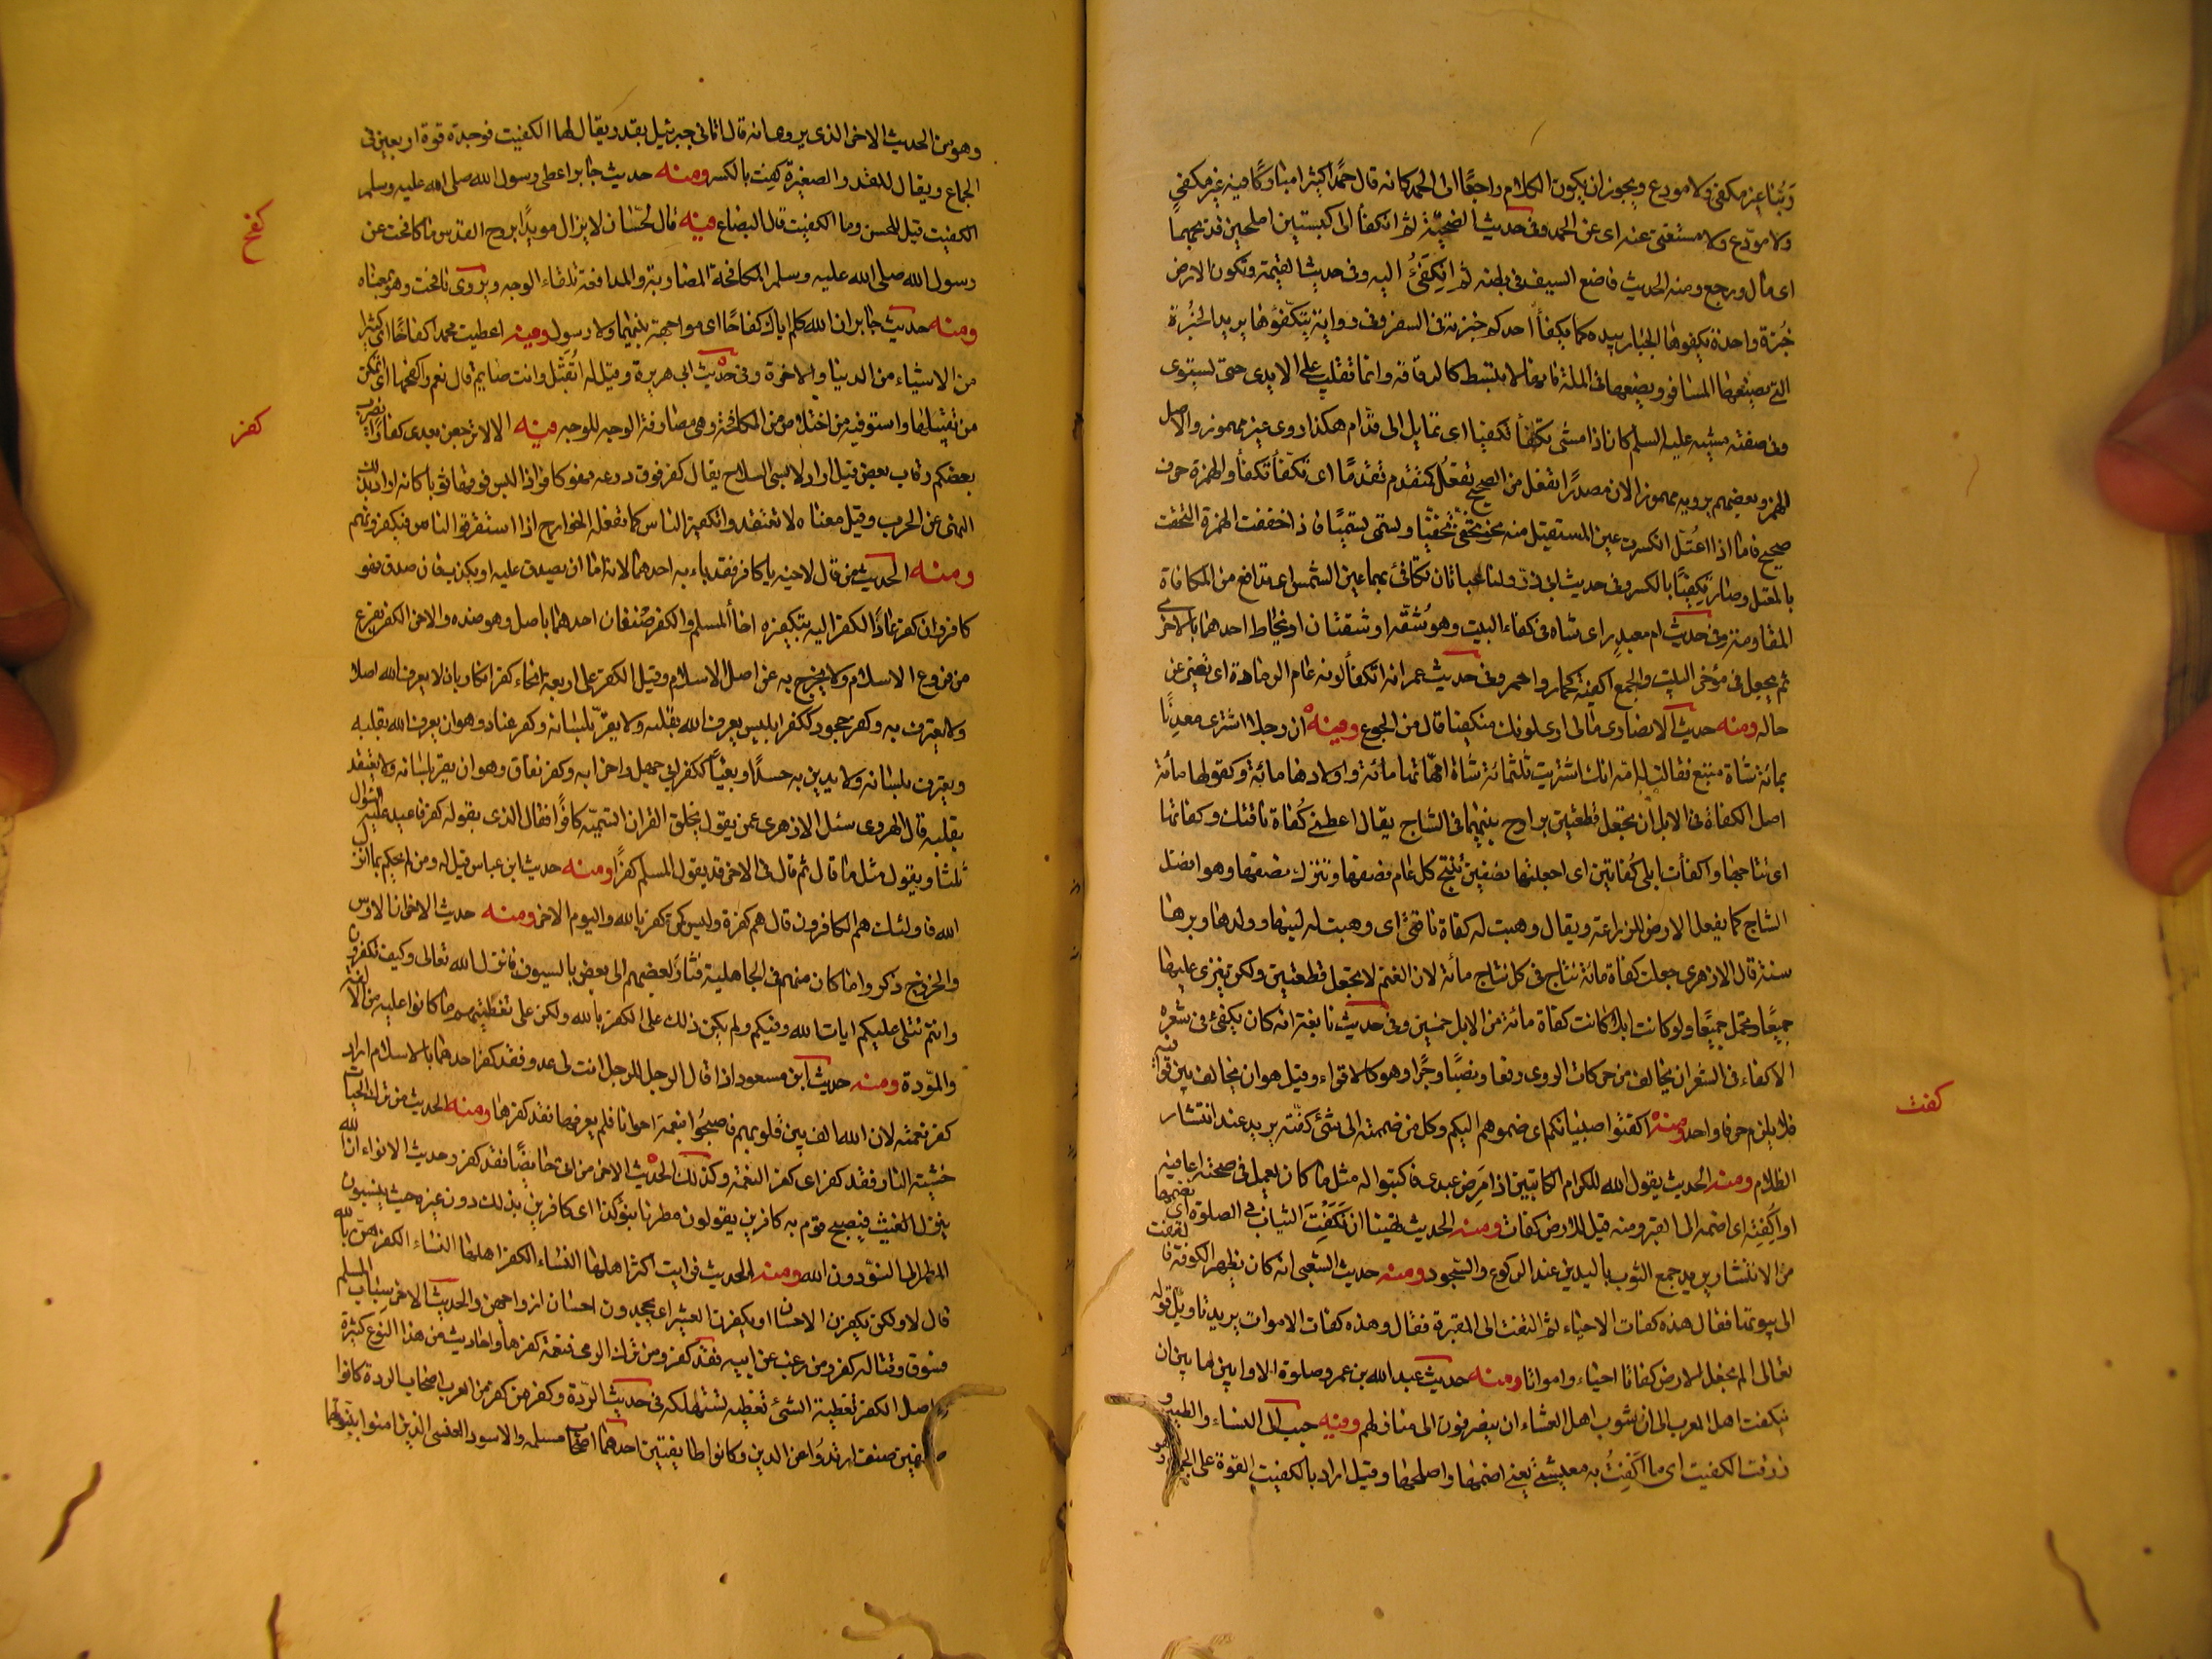 ربنا غير مكفى ولا مودع ويجوز ان يكون الكلام راجعا الى الحمد كانه قال حمدا كثيرا مباركا فيه غير مكفى
ولا مودع ولا مستغنى عنه اى عن الحمد وفى حديث الضحية ثم انكفأ الى كبشين املحين فذبحهما
اى مال ورجع ومنه الحديث فاضع السيف فى بطنه ثم انكفئ اليه وفى حديث القيمة وتكون الارض
خبزة واحدة يكفوها الجبار بيده كما يكفأ احدكم خبزته فى السفر وفى رواية يتكفؤها يريد الخبزة
التى يصنعها المسافر ويضعها فى الملة فانها لا تبسط كالرقاقة وانما تقلب على الايدى حتى تستوى
وفى صفة مشيه عليه السلم كان اذا مشى تكفأ تكفيا اى تمايل الى قدام هكذا روى غير مهموز والاصل
الهمز وبعضهم يرويه مهموزا لان مصدر تفعل من الصحيح تفعل كتقدم تقدما اى تكفأ تكفأ والهمزة حرف
صحيح فاما اذا اعتل انكسرت عين المستقبل منه نحو تخفى تخفيا وتسمى تسميا فاذا خففت الهمزة التحقت
بالمعتل وصار تكفيا بالكسر وفى حديث ابى ذر ولنا عباءتان نكافئ بهما عين الشمس اى ندافع من المكافاة
المقاومة وفى حديث ام معبد راى شاة فى كفاء البيت وهو شقة او شقتان تخاط احدهما بالاخرى
ثم يجعل فى مؤخر البيت والجمع اكفئة كحمار واحمرة وفى حديث عمر انه انكفأ لونه عام الرمادة اى تغير عن
حاله ومنه حديث الانصارى مالى ارى لونك منكفيا قال من الجوع ومنه ان رجلا اشترى معدنا
بمائة شاة متبع فقالت له امه انك اشتريت بثلثمائة شاة امهاتها مائة واولادها مائة وكفوتها مائة
اصل الكفاة فى الابل ان تجعل قطعتين يراوح بينهما فى النتاج يقال اعطنى كفاة ناقتك وكفاتها
اى نتاجها واكفأت ابلى كفاتين اى اجعلتها نصفين ينتج كل عام نصفها وتترك نصفها وهو افضل
النتاج كما يفعل الارض للزراعة ويقال وهبت له كفاة ناقتى اى وهبت له لبنها وولدها ووبرها
سنة قال الازهرى جعلت كفاة مائة نتاج فى كل نتاج مائة لان الغنم لا تجعل قطعتين ولكن ينزى عليها
جميعا وتحمل جميعا ولو كانت ابلا كانت كفاة مائة من الابل خمسين وفى حديث نابغة انه كان يكفئ فى شعره
الاكفاء فى الشعر ان يخالف بين حركات الروى رفعا ونصبا وجرا وهو كالاقواء وقيل هو ان يخالف بين قوافيه
فلا يلزم حرفا واحدا ومنه اكفتوا صبيانكم اى ضموهم اليكم وكل من ضممته الى شئ كفته يريد عند انتشار
الظلام ومنه الحديث يقول الله للكرام الكاتبين اذا مرض عبدى فاكتبوا له مثل ما كان يعمل فى صحته اعافيه
او اكفته اى اضمه الى القبر ومنه قيل للارض كفات ومنه الحديث نهينا ان نكفت الثياب فى الصلوة اى نضمها
من الانتشار يريد جمع الثوب باليدين عند الركوع والسجود ومنه حديث الشعبى انه كان بظهر الكوفة فالتفت
الى بيوتها فقال هذه كفات الاحياء ثم التفت الى المقبرة فقال وهذه كفات الاموات يريد تاويل قوله
تعالى الم نجعل الارض كفاتا احياء وامواتا ومنه حديث عبد الله بن عمر وصلوة الاوابين ما بين ان
ينكفت اهل المغرب الى ان يثوب اهل العشاء اى ينصرفون الى منازلهم ومنه حبب الى النساء والطيب و
رزقت الكفيت اى ما اكفت به معيشتى يعنى اضمها واصلحها وقيل اراد بالكفيت القوة على الجماع
كفت
وهو من الحديث الاخر الذى يروى انه قال اتانى جبرئيل بقدر يقال لها الكفيت فوجدت قوة اربعين فى
الجماع ويقال للقدر الصغيرة كفت بالكسر ومنه حديث جابر اعطى رسول الله صلى الله عليه وسلم
الكفيت قيل للحسن وما الكفيت قال البضاع ومنه قال لحسان لا يزال مويدا بروح القدس ما كافحت عن
رسول الله صلى الله عليه وسلم المكافحة المضاربة والمدافعة تلقاء الوجه ويروى نافحت وهو بمعناه
ومنه حديث جابر ان الله كلم اباك كفاحا اى مواجهة ليس بينهما ولا رسول ومنه اعطيت محمدا كفاحا اى كثيرا
من الاشياء من الدنيا والاخرة وفى حديث ابى هريرة وقيل له اتقبل وانت صايم قال نعم واكفحها اى اتمكن
من تقبيلها واستوفيه من اختلاس من المكافحة وهى مصادفة الوجه للوجه ومنه الا لا ترجعن بعدى كفارا يضرب
بعضكم رقاب بعض قيل اراد لابسى السلاح يقال كفر فوق درعه فهو كافر اذا لبس فوقها ثوبا كانه اراد بذلك
النهى عن الحرب وقيل معناه لا تعتقدوا تكفير الناس كما تفعله الخوارج اذا استعرضوا الناس فيكفرونهم
ومنه الحديث من قال لاخيه يا كافر فقد باء به احدهما لانه اما ان يصدق عليه او يكذب فان صدق فهو
كافر وان كذب عاد الكفر اليه بتكفيره اخاه المسلم والكفر صنفان احدهما باصل وهو ضده والاخر الكفر بفرع
من فروع الاسلام ولا يخرج به عن اصل الاسلام وقيل الكفر على اربعة انحاء كفر انكار بان لا يعرف الله اصلا
ولا يعترف به وكفر جحود ككفر ابليس يعرف الله بقلبه ولا يقر بلسانه وكفر عناد وهو ان يعرف الله بقلبه
ويعترف بلسانه ولا يدين به حسدا وبغيا ككفر ابى جهل واضرابه وكفر نفاق وهو ان يقر بلسانه ولا يعتقد
بقلبه قال الهروى سئل الازهرى عمن يقول بخلق القران اتسميه كافرا فقال الذى يقوله كفر فاعيد عليه السؤال
ثلثا ويقول مثل ما قال ثم قال فى الاخر قد يقول المسلم كفرا ومنه حديث ابن عباس قيل له ومن لم يحكم بما انزل
الله فاولئك هم الكافرون قال هم كفرة وليس كمن كفر بالله واليوم الاخر ومنه حديث الاخر ان الاوس
والخزرج ذكروا ما كان منهم فى الجاهلية فثار بعضهم الى بعض بالسيوف فانزل الله تعالى وكيف تكفرون
وانتم تتلى عليكم ايات الله وفيكم ولم يكن ذلك على الكفر بالله ولكن على تغطيتهم ما كانوا عليه من الالفة
والمودة ومنه حديث ابن مسعود اذا قال الرجل للرجل انت لى عدو فقد كفر احدهما بالاسلام اراد
كفر نعمته لان الله الف بين قلوبهم فاصبحوا بنعمته اخوانا فلم يعرفها فقد كفرها ومنه الحديث من ترك الحيات
خشية النار فقد كفر اى كفر النعمة وكذلك الحديث الاخر من اتى حائضا فقد كفر وحديث الانواء ان الله
ينزل الغيث فيصبح قوم به كافرين يقولون مطرنا بنوء كذا اى كافرين بذلك دون غيره حيث ينسبون
المطر الى النوء دون الله ومنه الحديث فرايت اكثر اهلها النساء الكفر اهلها النساء لكفرهن بالله
قال لا ولكن يكفرن الاحسان او يكفرن العشير اى يجحدون احسان ازواجهن والحديث الاخر سباب المسلم
فسوق وقتاله كفر ومن رغب عن ابيه فقد كفر ومن ترك الرمى فنعمة كفرها واحاديث من هذا النوع كثيرة
واصل الكفر تغطية الشئ تغطيه تستهلكه فى حديث الردة وكفر من كفر من العرب اصحاب الردة كانوا
صنفين صنف ارتدوا عن الدين وكانوا طايفتين احدهما اصحاب مسيلمه والاسود العنسى الذين امنوا بنبوتهما
كفح
كفر